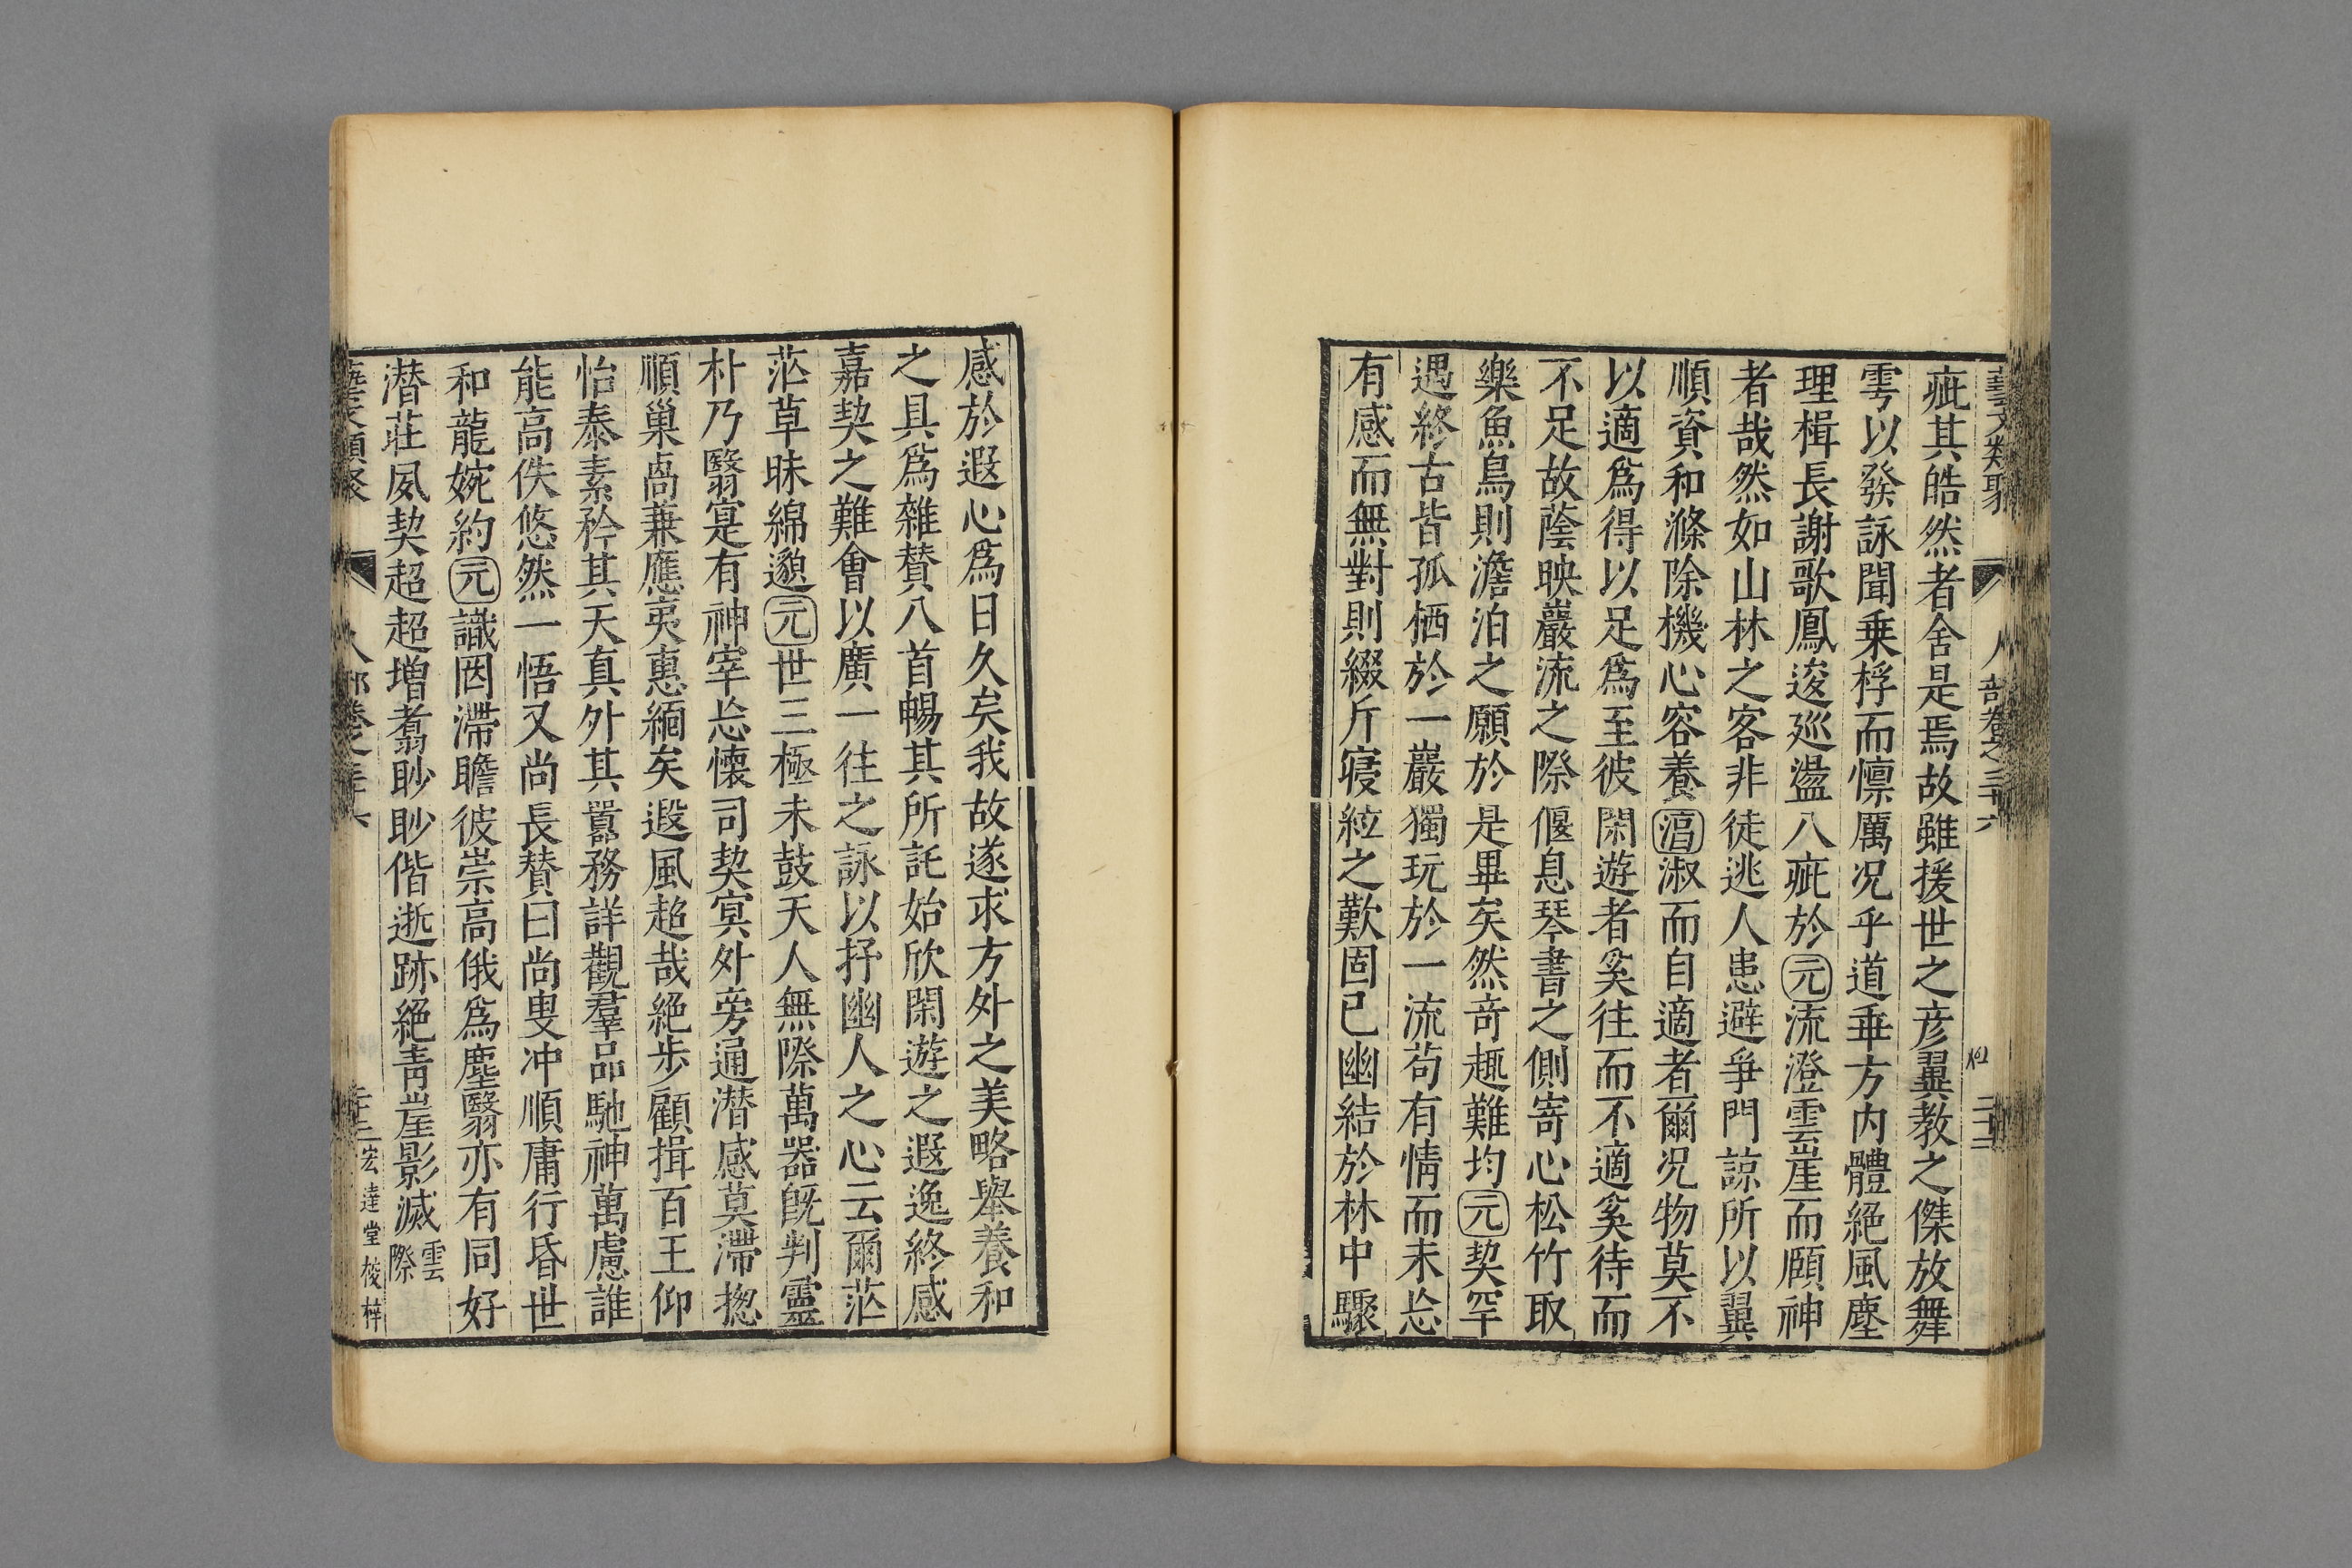 藝文類聚 人部卷之三十六 二十二
疵其皓然者舍是焉故雖援世之彦翼教之傑放舞
雩以發詠聞乗桴而懔厲况乎道乖方内體絕風塵
理楫長謝歌鳳逡巡盪八疵於元流澄雲崖而頤神
者哉然如山林之客非徒逃人患避爭門諒所以翼
順資和滌除機心容養淯淑而自適者爾况物莫不
以適爲得以足爲至彼閑遊者奚往而不適奚待而
不足故蔭映巖流之際偃息琴書之側寄心松竹取
樂魚鳥則澹泊之願於是畢矣然奇趣難均元契罕
遇終古皆孤栖於一巖獨玩於一流苟有情而未忘
有感而無對則綴斤寢絃之歎固已幽結於林中驟
感於遐心爲日久矣我故遂求方外之美略舉養和
之具爲雜賛八首暢其所託始欣閑遊之遐逸終感
嘉契之難會以廣一往之詠以抒幽人之心云爾茫
茫草昧綿邈元世三極未鼓天人無際萬器旣判靈
朴乃翳寔有神宰忘懷司契冥外旁通潜感莫滯揔
順巢卨兼應夷惠緬矣遐風超哉絕步顧揖百王仰
怡泰素矜其天真外其囂務詳觀羣品馳神萬慮誰
能高佚悠然一悟又尚長賛曰尚叟冲順庸行昏世
和龍婉約元識罔滯瞻彼崇高俄爲塵翳亦有同好
潜莊夙契超超增翥眇眇偕逝跡絕青崖影滅雲際
藝文類聚 人部卷之三十六 二十二 宏達堂校梓